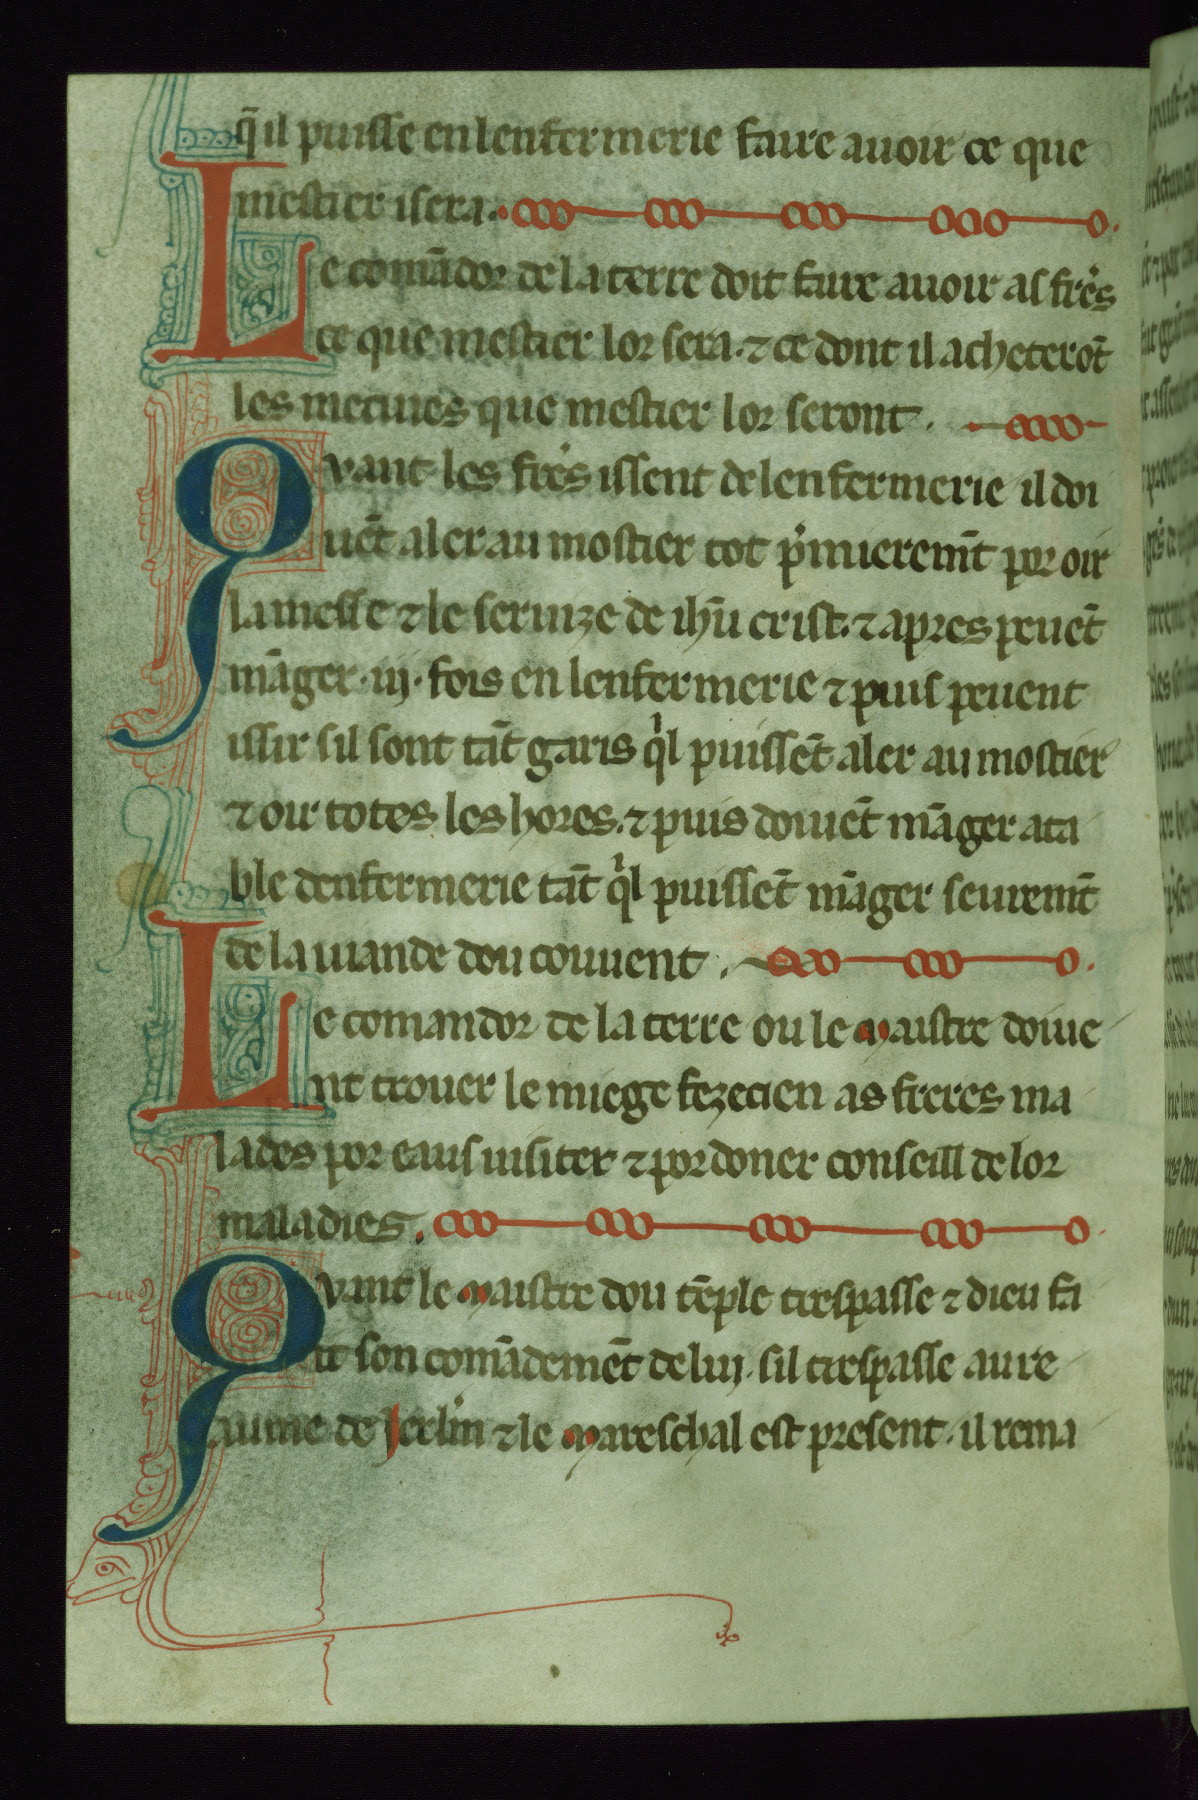 q̃il puisse en lenfermerie faire auoir ce que
mestier i sera.
Le comãdor de la terre doit faire auoir as frẽs
ce que mestier lor sera. ⁊ ce dont il acheterõt
les mecines que mestier lor seront.
Qvant les frẽs issent de lenfermerie il doi
uẽt aler au mostier tot p̍mieremẽt por oir
la messe ⁊ le seruize de ihũ crist. ⁊ apres peuẽt
mãger .iij. fois en lenfermerie ⁊ puis peuent
issir sil sont tãt garis q̍l puissẽt aler au mostier
⁊ oir totes les hores. ⁊ puis doiuẽt mãger a ta
ble denfermerie tãt q̍l puissẽt mãger seuremẽt
de la uiande dou couuent.
Le comandor de la terre ou le maistre doiue
nt trouer le miege fezecien as freres ma
lades por eaus uisiter ⁊ por doner conseill de lor
maladies.
Qvant le maistre dou tẽple trespasse ⁊ dieu fa
it son comãdemẽt de luj. sil trespasse au re
aume de Jerlm̃ ⁊ le mareschal est present. il rema